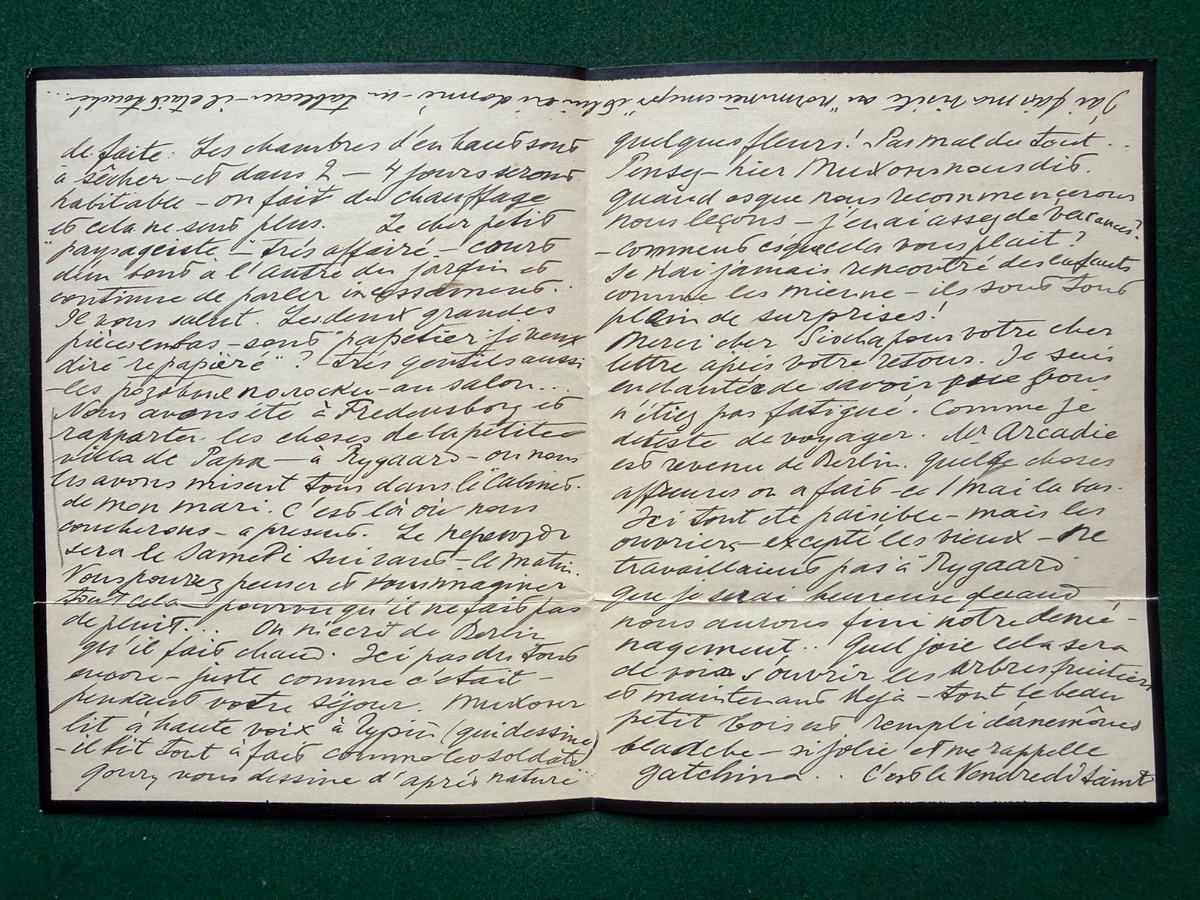 de faite. Les chambres d'en haut sont
à sécher – et dans 2 – 4 jours seront
habitable – on fait du chauffage
et cela ne sent plus. Le cher petit
"paysagiste" – très affairé – court
d'un bout à l'autre du jardin et
continue de parler incessament..
Il vous salut. Les deux grandes
pièces en bas – sont "papetier je veux
dire repapiéré"? très gentils aussi
les розовые – au salon...
Nous avons été à Fredensborg et
rapporter les choses de la petite
villa de Papa – à Rygaard – ou nous
les avons misent tous dans le Cabinet
de mon mari. C'est là où nous
coucherons – à present. Le переезд
sera le Samedi suivant – le matin.
Vous pouvez penser et vous imaginer
tout cela – pourvu qu'il ne fait pas
de pluit... On m'écrit de Berlin
qu'il fait chaud. Ici pas du tout
encore – juste comme c'était –
pendant votre séjour. Тихон
lit à haute voix à (qui dessine)
– il lit tout à fait comme les soldats
Goury vous dessine d'après nature
quelques fleurs! Pas mal du tout..
Pensez – hier Тихон nous dit.
quand esque nous recommencerons
nous leçons – j'en ai assez de vacances?
– comment esque cela vous plait?
Je n'ai jamais rencontré des enfants
comme les mienne – ils sont tout
plein de surprises!
Merci cher pour votre cher
lettre après votre retour. Je suis
enchantée de savoir que vous
n'étiez pas fatigué. Comme je
déteste de voyager. Mr Arcadie
est revenu de Berlin. Quelqe choses
affreuses on a fait – ce 1 Mai la bas.
Ici tout été paisible – mais les
ouvriers – excepté les vieux – ne
travaillaient pas à Rygaard
que je serai heureuse quand
nous aurons fini notre démé-
nagement.. Quel joie cela sera
de voir s'ouvrir les arbres fruitiers
et maintenant déjà – tout le beau
petit bois est rempli d'anemônes
– si jolie et me rappelle
Gatchina.. C'est le Vendredi Saint
J'ai fait ma visite au et lui ai donné – un tableau – il était touché –